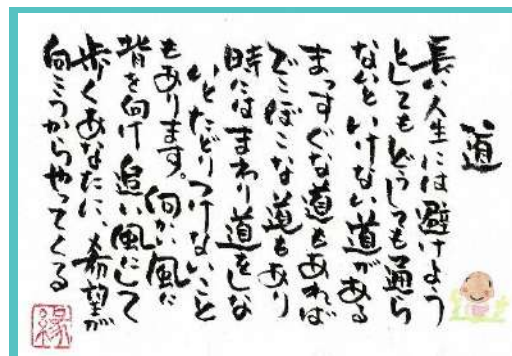 道
長い人生には避けよう
としてもどうしても通ら
ないといけない道がある
まっすぐな道もあれば
でこぼこな道もあり
時にはまわり道をしな
いとたどりつけないこと
もあります。向かい風に
背を向け追い風にして
歩くあなたに、希望が
向こうからやってくる
縁